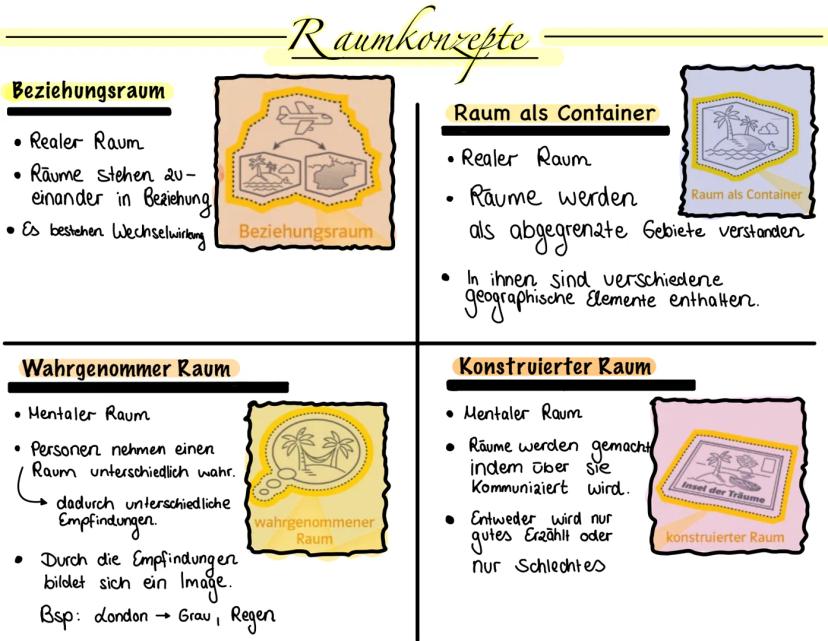 Raumkonzepte
Beziehungsraum
• Realer Raum
• Räume stehen zu-
einander in Beziehung
• Es bestehen Wechselwirkung
Beziehungsraum
Raum als Container
• Realer Raum
• Räume werden
als abgegrenzte Gebiete verstanden
• In ihnen sind verschiedene
geographische Elemente enthalten.
Raum als Container
Wahrgenommer Raum
• Mentaler Raum
• Personen nehmen einen
Raum unterschiedlich wahr.
→ dadurch unterschiedliche
Empfindungen.
• Durch die Empfindungen
bildet sich ein Image.
Bsp: London → Grau, Regen
wahrgenommener
Raum
Konstruierter Raum
• Mentaler Raum
• Räume werden gemacht
indem über sie
Kommuniziert wird.
• Entweder wird nur
gutes Erzählt oder
nur Schlechtes
Insel der Träume
konstruierter Raum